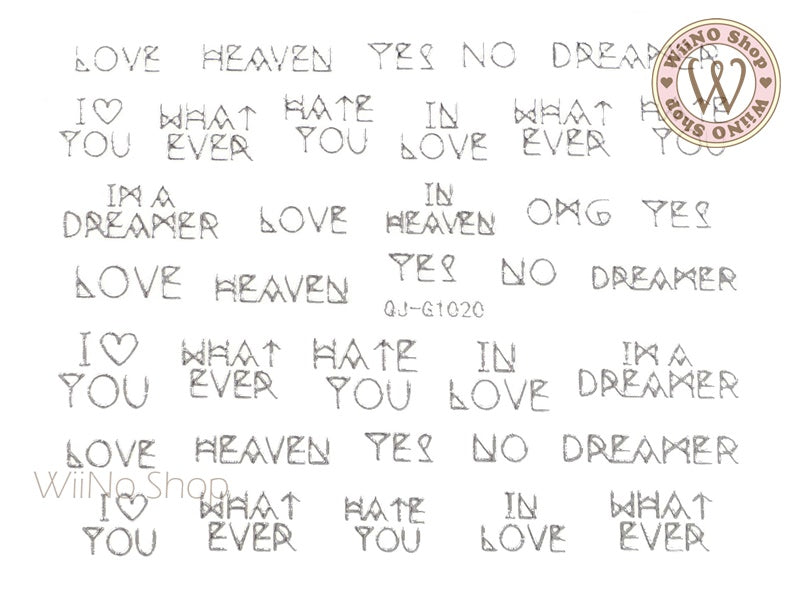 WiiNO Shop
W
WiiNO Shop
LOVE HEAVEN YES NO DREAMER
I♡ YOU
WHAT EVER
HATE YOU
IN LOVE
WHAT EVER
HATE YOU
IM A DREAMER
LOVE
IN HEAVEN
OMG
YES
LOVE HEAVEN YES NO DREAMER
QJ-G1020
I♡ YOU
WHAT EVER
HATE YOU
IN LOVE
IM A DREAMER
LOVE HEAVEN YES NO DREAMER
WiiNo Shop
I♡ YOU
WHAT EVER
HATE YOU
IN LOVE
WHAT EVER